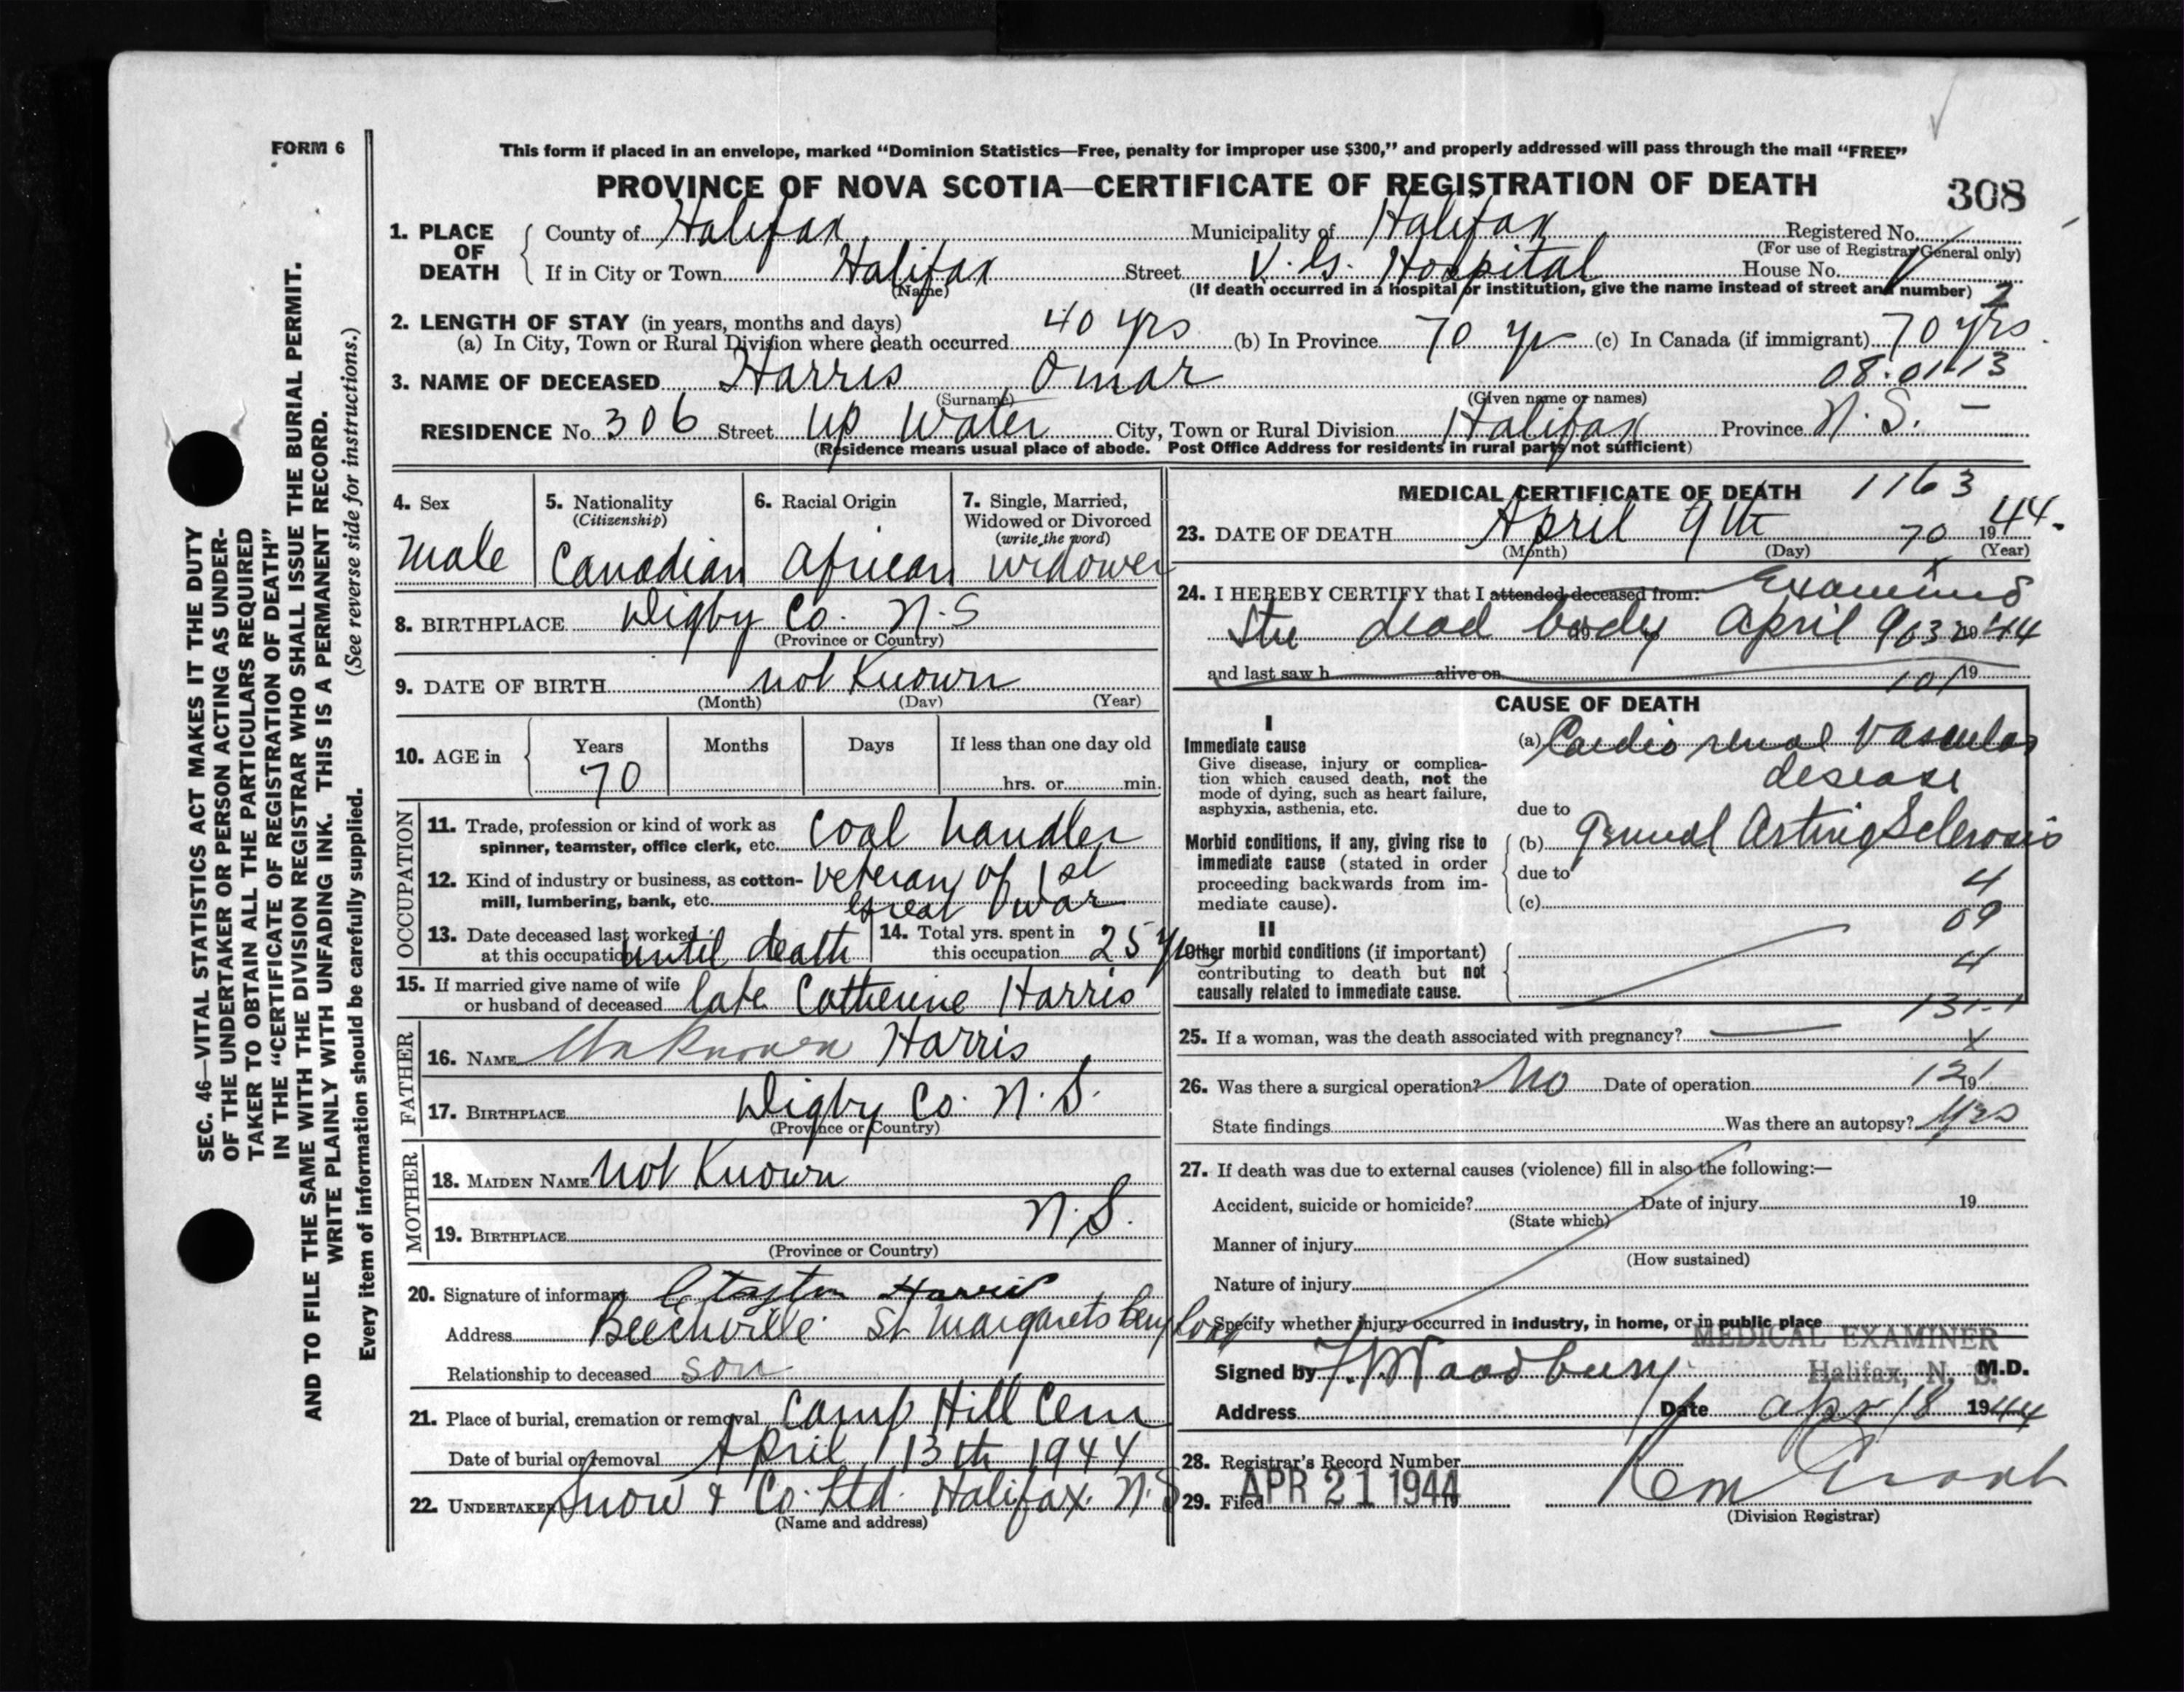 FORM 6
This form if placed in an envelope, marked “Dominion Statistics—Free, penalty for improper use $300,” and properly addressed will pass through the mail “FREE”
PROVINCE OF NOVA SCOTIA—CERTIFICATE OF REGISTRATION OF DEATH
308
1. PLACE OF DEATH
County of Halifax Municipality of Halifax Registered No.
(For use of Registrar General only)
If in City or Town Halifax Street V. G. Hospital House No.
(Name) (If death occurred in a hospital or institution, give the name instead of street and number) 2
2. LENGTH OF STAY (in years, months and days)
(a) In City, Town or Rural Division where death occurred 40 yrs (b) In Province 70 yr (c) In Canada (if immigrant) 70 yrs
3. NAME OF DECEASED Harris, Omar 08.01113
(Surname) (Given name or names)
RESIDENCE No. 306 Street Up Water City, Town or Rural Division Halifax Province N.S. —
(Residence means usual place of abode. Post Office Address for residents in rural parts not sufficient)
4. Sex Male
5. Nationality (Citizenship) Canadian
6. Racial Origin African
7. Single, Married, Widowed or Divorced (write the word) widower
8. BIRTHPLACE Digby Co. N.S
(Province or Country)
9. DATE OF BIRTH not Known
(Month) (Day) (Year)
10. AGE in Years Months Days If less than one day old
70 hrs. or min.
OCCUPATION
11. Trade, profession or kind of work as spinner, teamster, office clerk, etc. Coal handler
12. Kind of industry or business, as cotton-mill, lumbering, bank, etc. Veteran of 1st Great War
13. Date deceased last worked at this occupation until death
14. Total yrs. spent in this occupation 25 yrs
15. If married give name of wife or husband of deceased late Catherine Harris
FATHER
16. NAME Unknown Harris
17. BIRTHPLACE Digby Co. N.S.
(Province or Country)
MOTHER
18. MAIDEN NAME Not Known
19. BIRTHPLACE N.S.
(Province or Country)
20. Signature of informant Harris
Address Beechville St Margarets Bay Road
Relationship to deceased son
21. Place of burial, cremation or removal Camp Hill Cem
Date of burial or removal April 13th 1944
22. UNDERTAKER Snow & Co. Ltd. Halifax. N.S
(Name and address)
MEDICAL CERTIFICATE OF DEATH 1163
23. DATE OF DEATH April 9th 70 1944.
(Month) (Day) (Year)
24. I HEREBY CERTIFY that I attended deceased from: Examined
the dead body April 9 1944
and last saw h alive on 19
101
CAUSE OF DEATH
I
Immediate cause
Give disease, injury or complication which caused death, not the mode of dying, such as heart failure, asphyxia, asthenia, etc.
(a) Cardio renal vascular
disease
due to
Morbid conditions, if any, giving rise to immediate cause (stated in order proceeding backwards from immediate cause).
(b) General Arterio Sclerosis
due to
4
(c)
09
II
Other morbid conditions (if important) contributing to death but not causally related to immediate cause.
4
131-1
25. If a woman, was the death associated with pregnancy?
x
26. Was there a surgical operation? No Date of operation 19
121
State findings Was there an autopsy? Yes
27. If death was due to external causes (violence) fill in also the following:—
Accident, suicide or homicide? Date of injury 19
(State which)
Manner of injury
(How sustained)
Nature of injury
Specify whether injury occurred in industry, in home, or in public place
MEDICAL EXAMINER
Halifax, N. S.
Signed by Woodbury M.D.
Address Date Apr 18 1944
28. Registrar's Record Number
29. Filed APR 21 1944 19
(Division Registrar)
SEC. 46—VITAL STATISTICS ACT MAKES IT THE DUTY
OF THE UNDERTAKER OR PERSON ACTING AS UNDER-
TAKER TO OBTAIN ALL THE PARTICULARS REQUIRED
IN THE “CERTIFICATE OF REGISTRATION OF DEATH”
AND TO FILE THE SAME WITH THE DIVISION REGISTRAR WHO SHALL ISSUE THE BURIAL PERMIT.
WRITE PLAINLY WITH UNFADING INK. THIS IS A PERMANENT RECORD.
Every item of information should be carefully supplied. (See reverse side for instructions.)